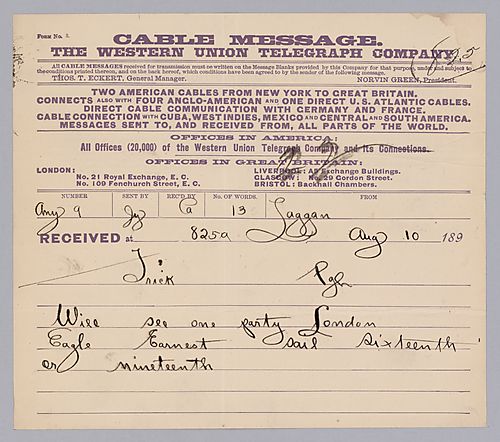 Form No. 1.
CABLE MESSAGE.
THE WESTERN UNION TELEGRAPH COMPANY.
All CABLE MESSAGES received for transmission must be written on the Message Blanks provided by this Company for that purpose, under and subject to
the conditions printed thereon, and on the back hereof, which conditions have been agreed to by the sender of the following message.
THOS. T. ECKERT, General Manager. NORVIN GREEN, President.
TWO AMERICAN CABLES FROM NEW YORK TO GREAT BRITAIN.
CONNECTS ALSO WITH FOUR ANGLO-AMERICAN AND ONE DIRECT U.S. ATLANTIC CABLES.
DIRECT CABLE COMMUNICATION WITH GERMANY AND FRANCE.
CABLE CONNECTION WITH CUBA, WEST INDIES, MEXICO AND CENTRAL AND SOUTH AMERICA.
MESSAGES SENT TO, AND RECEIVED FROM, ALL PARTS OF THE WORLD.
OFFICES IN AMERICA:
All Offices (20,000) of the Western Union Telegraph Company and Its Connections.
22
OFFICES IN GREAT BRITAIN:
LONDON: LIVERPOOL: A8 Exchange Buildings.
No. 21 Royal Exchange, E. C. GLASGOW: No. 29 Gordon Street.
No. 109 Fenchurch Street, E. C. BRISTOL: Backhall Chambers.
NUMBER SENT BY REC'D BY No. OF WORDS. FROM
9 Jy Ca 13 Laggan
RECEIVED at 825a Aug 10 189
Frick Pgh
Will see one party London
Eagle Earnest sail sixteenth
or nineteenth